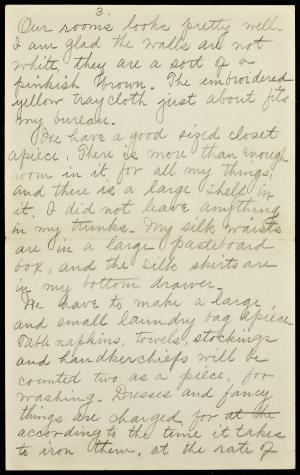 3.
Our rooms looks pretty well.
I am glad the walls are not
white, they are a sort of a
pinkish brown. The embroidered
yellow traycloth just about fits
my bureau.
We have a good sized closet
apiece. There is more than enough
room in it, for all my things,
and there is a large shelf in
it. I did not leave anything
in my trunks. My silk waists
are in a large pasteboard
box, and the silk skirts are
in my bottom drawer.
We have to make a large
and small laundry bag apiece
Table napkins, towels, stockings
and handkerchiefs will be
counted two as a piece, for
washing. Dresses and fancy
things are charged for at the
according to the time it takes
to iron them, at the rate of